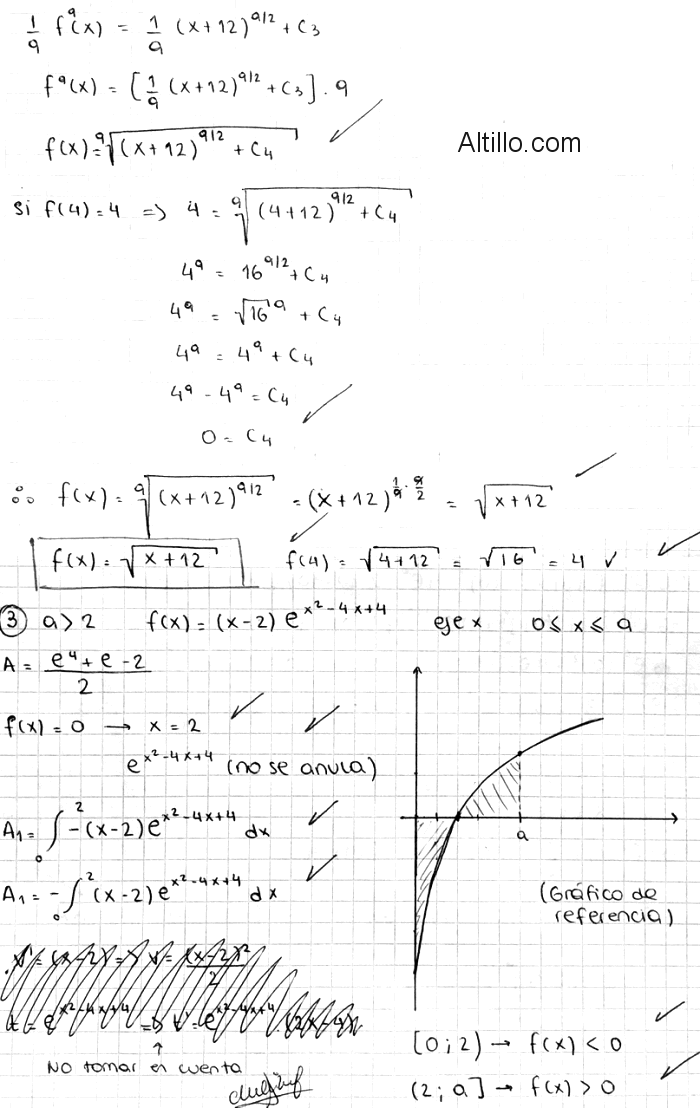 1/9 f⁹(x) = 1/9 (x+12)^(9/2) + C₃
f⁹(x) = [1/9 (x+12)^(9/2) + C₃] . 9
f(x) = ⁹√((x+12)^(9/2) + C₄)
Altillo.com
si f(4) = 4 => 4 = ⁹√((4+12)^(9/2) + C₄)
4⁹ = 16^(9/2) + C₄
4⁹ = √16⁹ + C₄
4⁹ = 4⁹ + C₄
4⁹ - 4⁹ = C₄
0 = C₄
∴ f(x) = ⁹√((x+12)^(9/2)) = (x+12)^(1/9 · 9/2) = √(x+12)
f(x) = √(x+12) f(4) = √(4+12) = √16 = 4 ✓
③ a > 2 f(x) = (x-2) e^(x²-4x+4) eje x 0 ≤ x ≤ a
A = (e⁴ + e - 2)/2
f(x) = 0 → x = 2
e^(x²-4x+4) (no se anula)
A₁ = ∫₀² -(x-2) e^(x²-4x+4) dx
A₁ = -∫₀² (x-2) e^(x²-4x+4) dx
a
(Gráfico de
referencia)
No tomar en cuenta
[0;2) → f(x) < 0
(2;a] → f(x) > 0